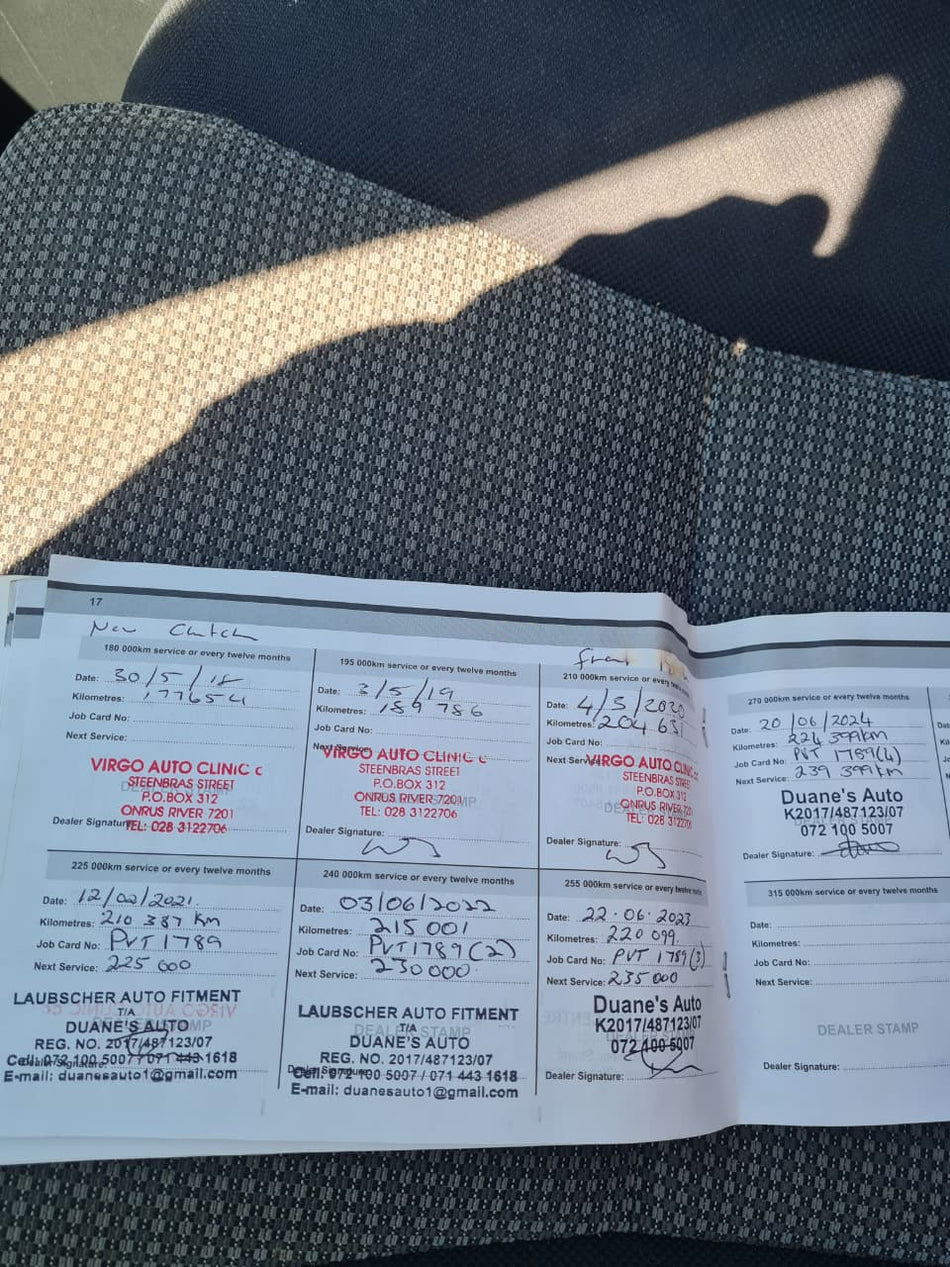 17
New Clutch
180 000km service or every twelve months
Date: 30/5/18
Kilometres: 177654
Job Card No:
Next Service:
VIRGO AUTO CLINIC c
STEENBRAS STREET
P.O.BOX 312
ONRUS RIVER 7201
TEL: 028 3122706
Dealer Signature:
195 000km service or every twelve months
Date: 3/5/19
Kilometres: 189 786
Job Card No:
Next Service:
VIRGO AUTO CLINIC c
STEENBRAS STREET
P.O.BOX 312
ONRUS RIVER 7201
TEL: 028 3122706
Dealer Signature:
front
210 000km service or every twelve months
Date: 4/5/2020
Kilometres: 204 631
Job Card No:
Next Service:
VIRGO AUTO CLINIC
STEENBRAS STREET
P.O.BOX 312
ONRUS RIVER 7201
TEL: 028 312270
Dealer Signature:
270 000km service or every twelve months
Date: 20/06/2024
Kilometres: 224 399km
Job Card No: PVT 1789(4)
Next Service: 239 399km
Duane's Auto
K2017/487123/07
072 100 5007
Dealer Signature:
225 000km service or every twelve months
Date: 12/02/2021.
Kilometres: 210 387 km
Job Card No: PVT 1789
Next Service: 225 000
LAUBSCHER AUTO FITMENT
T/A
DUANE'S AUTO
REG. NO. 2017/487123/07
Cell: 072 100 5007 / 071 443 1618
Dealer Signature:
E-mail: duanesauto1@gmail.com
240 000km service or every twelve months
Date: 03/06/2022
Kilometres: 215 001
Job Card No: PVT1789(2)
Next Service: 230000.
LAUBSCHER AUTO FITMENT
DEALER STAMP
T/A
DUANE'S AUTO
REG. NO. 2017/487123/07
Dealer Signature:
Cell: 072 100 5007 / 071 443 1618
E-mail: duanesauto1@gmail.com
255 000km service or every twelve months
Date: 22.06.2023
Kilometres: 220 099
Job Card No: PVT 1789(3)
Next Service: 235 000
Duane's Auto
K2017/487123/07
072 100 5007
Dealer Signature:
315 000km service or every twelve months
Date:
Kilometres:
Job Card No:
Next Service:
DEALER STAMP
Dealer Signature: